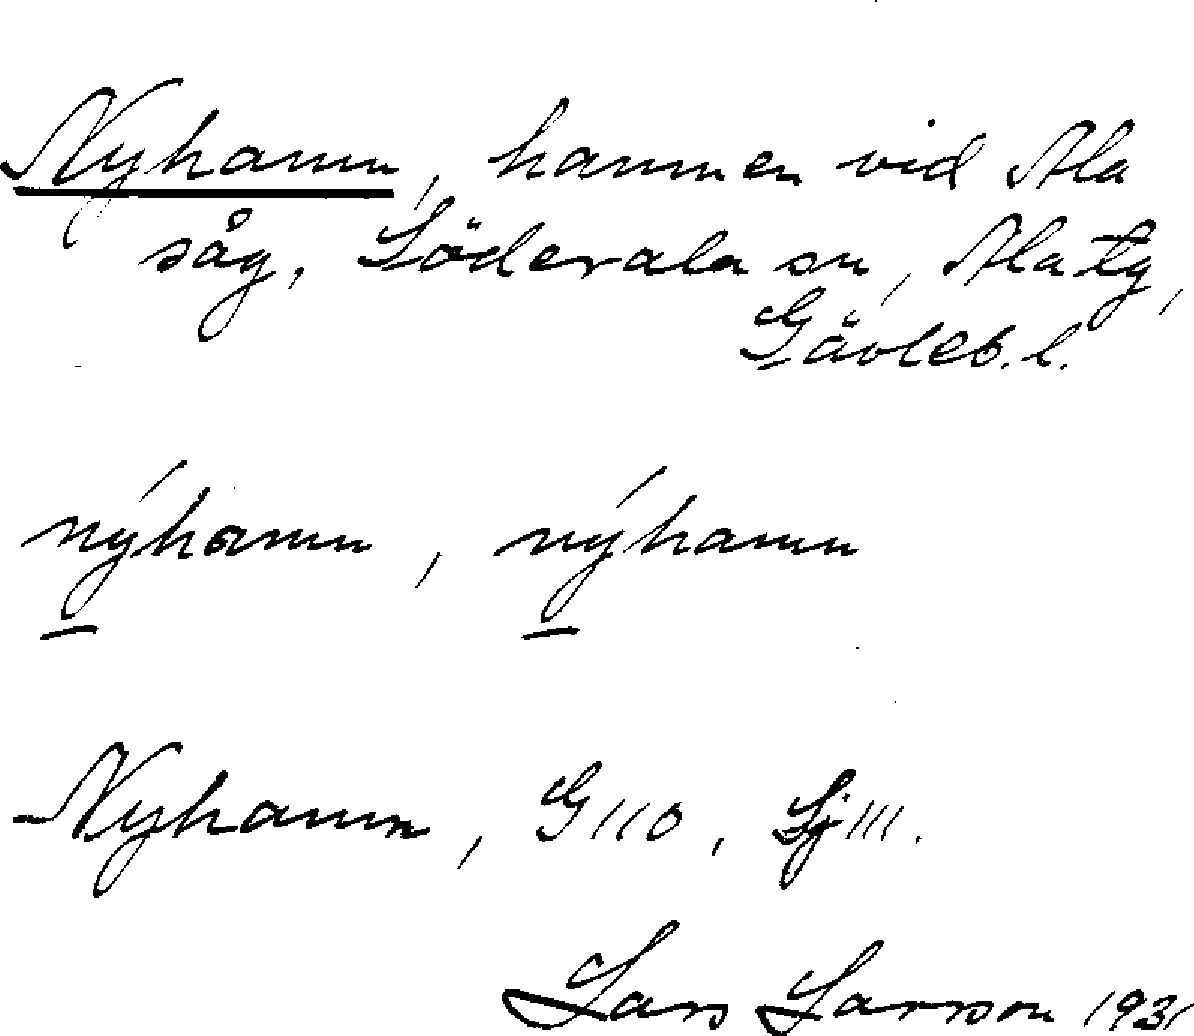 Nyhamn, hamnen vid Ala
såg, Söderala sn, Ala tg,
Gävleb. l.
nýhamn, nýhamn
Nyhamn, G 110, Sj 111.
Lars Larsson 1931